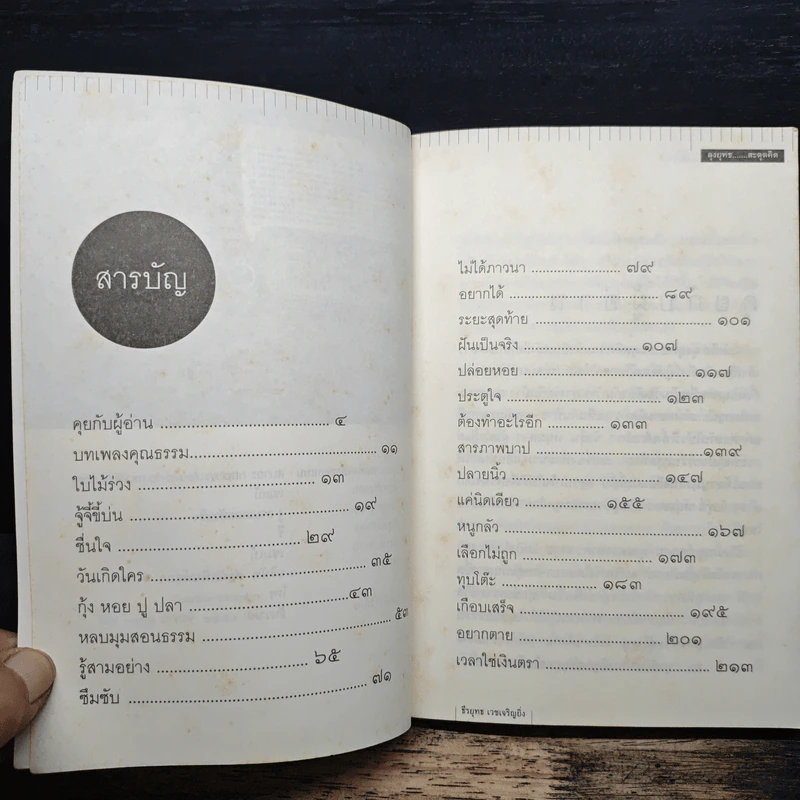 สารบัญ
คุยกับผู้อ่าน ................................ ๔
บทเพลงคุณธรรม................................ ๑๑
ใบไม้ร่วง ................................ ๑๓
จู้จี้ขี้บ่น ................................ ๑๙
ชื่นใจ ................................ ๒๙
วันเกิดใคร ................................ ๓๕
กุ้ง หอย ปู ปลา ................................ ๔๓
หลบมุมสอนธรรม ................................ ๕๓
รู้สามอย่าง ................................ ๖๕
ซึมซับ ................................ ๗๑
ลุงยุทธ......สะดุดคิด
ไม่ได้ภาวนา ................................ ๗๙
อยากได้ ................................ ๘๙
ระยะสุดท้าย ................................ ๑๐๑
ฝันเป็นจริง ................................ ๑๐๗
ปล่อยหอย ................................ ๑๑๗
ประตูใจ ................................ ๑๒๓
ต้องทำอะไรอีก ................................ ๑๓๓
สารภาพบาป ................................ ๑๓๙
ปลายนิ้ว ................................ ๑๔๗
แค่นิดเดียว ................................ ๑๕๕
หนูกลัว ................................ ๑๖๗
เลือกไม่ถูก ................................ ๑๗๓
ทุบโต๊ะ ................................ ๑๘๓
เกือบเสร็จ ................................ ๑๙๕
อยากตาย ................................ ๒๐๑
เวลาใช่เงินตรา ................................ ๒๑๓
ธีรยุทธ เวชเจริญยิ่ง